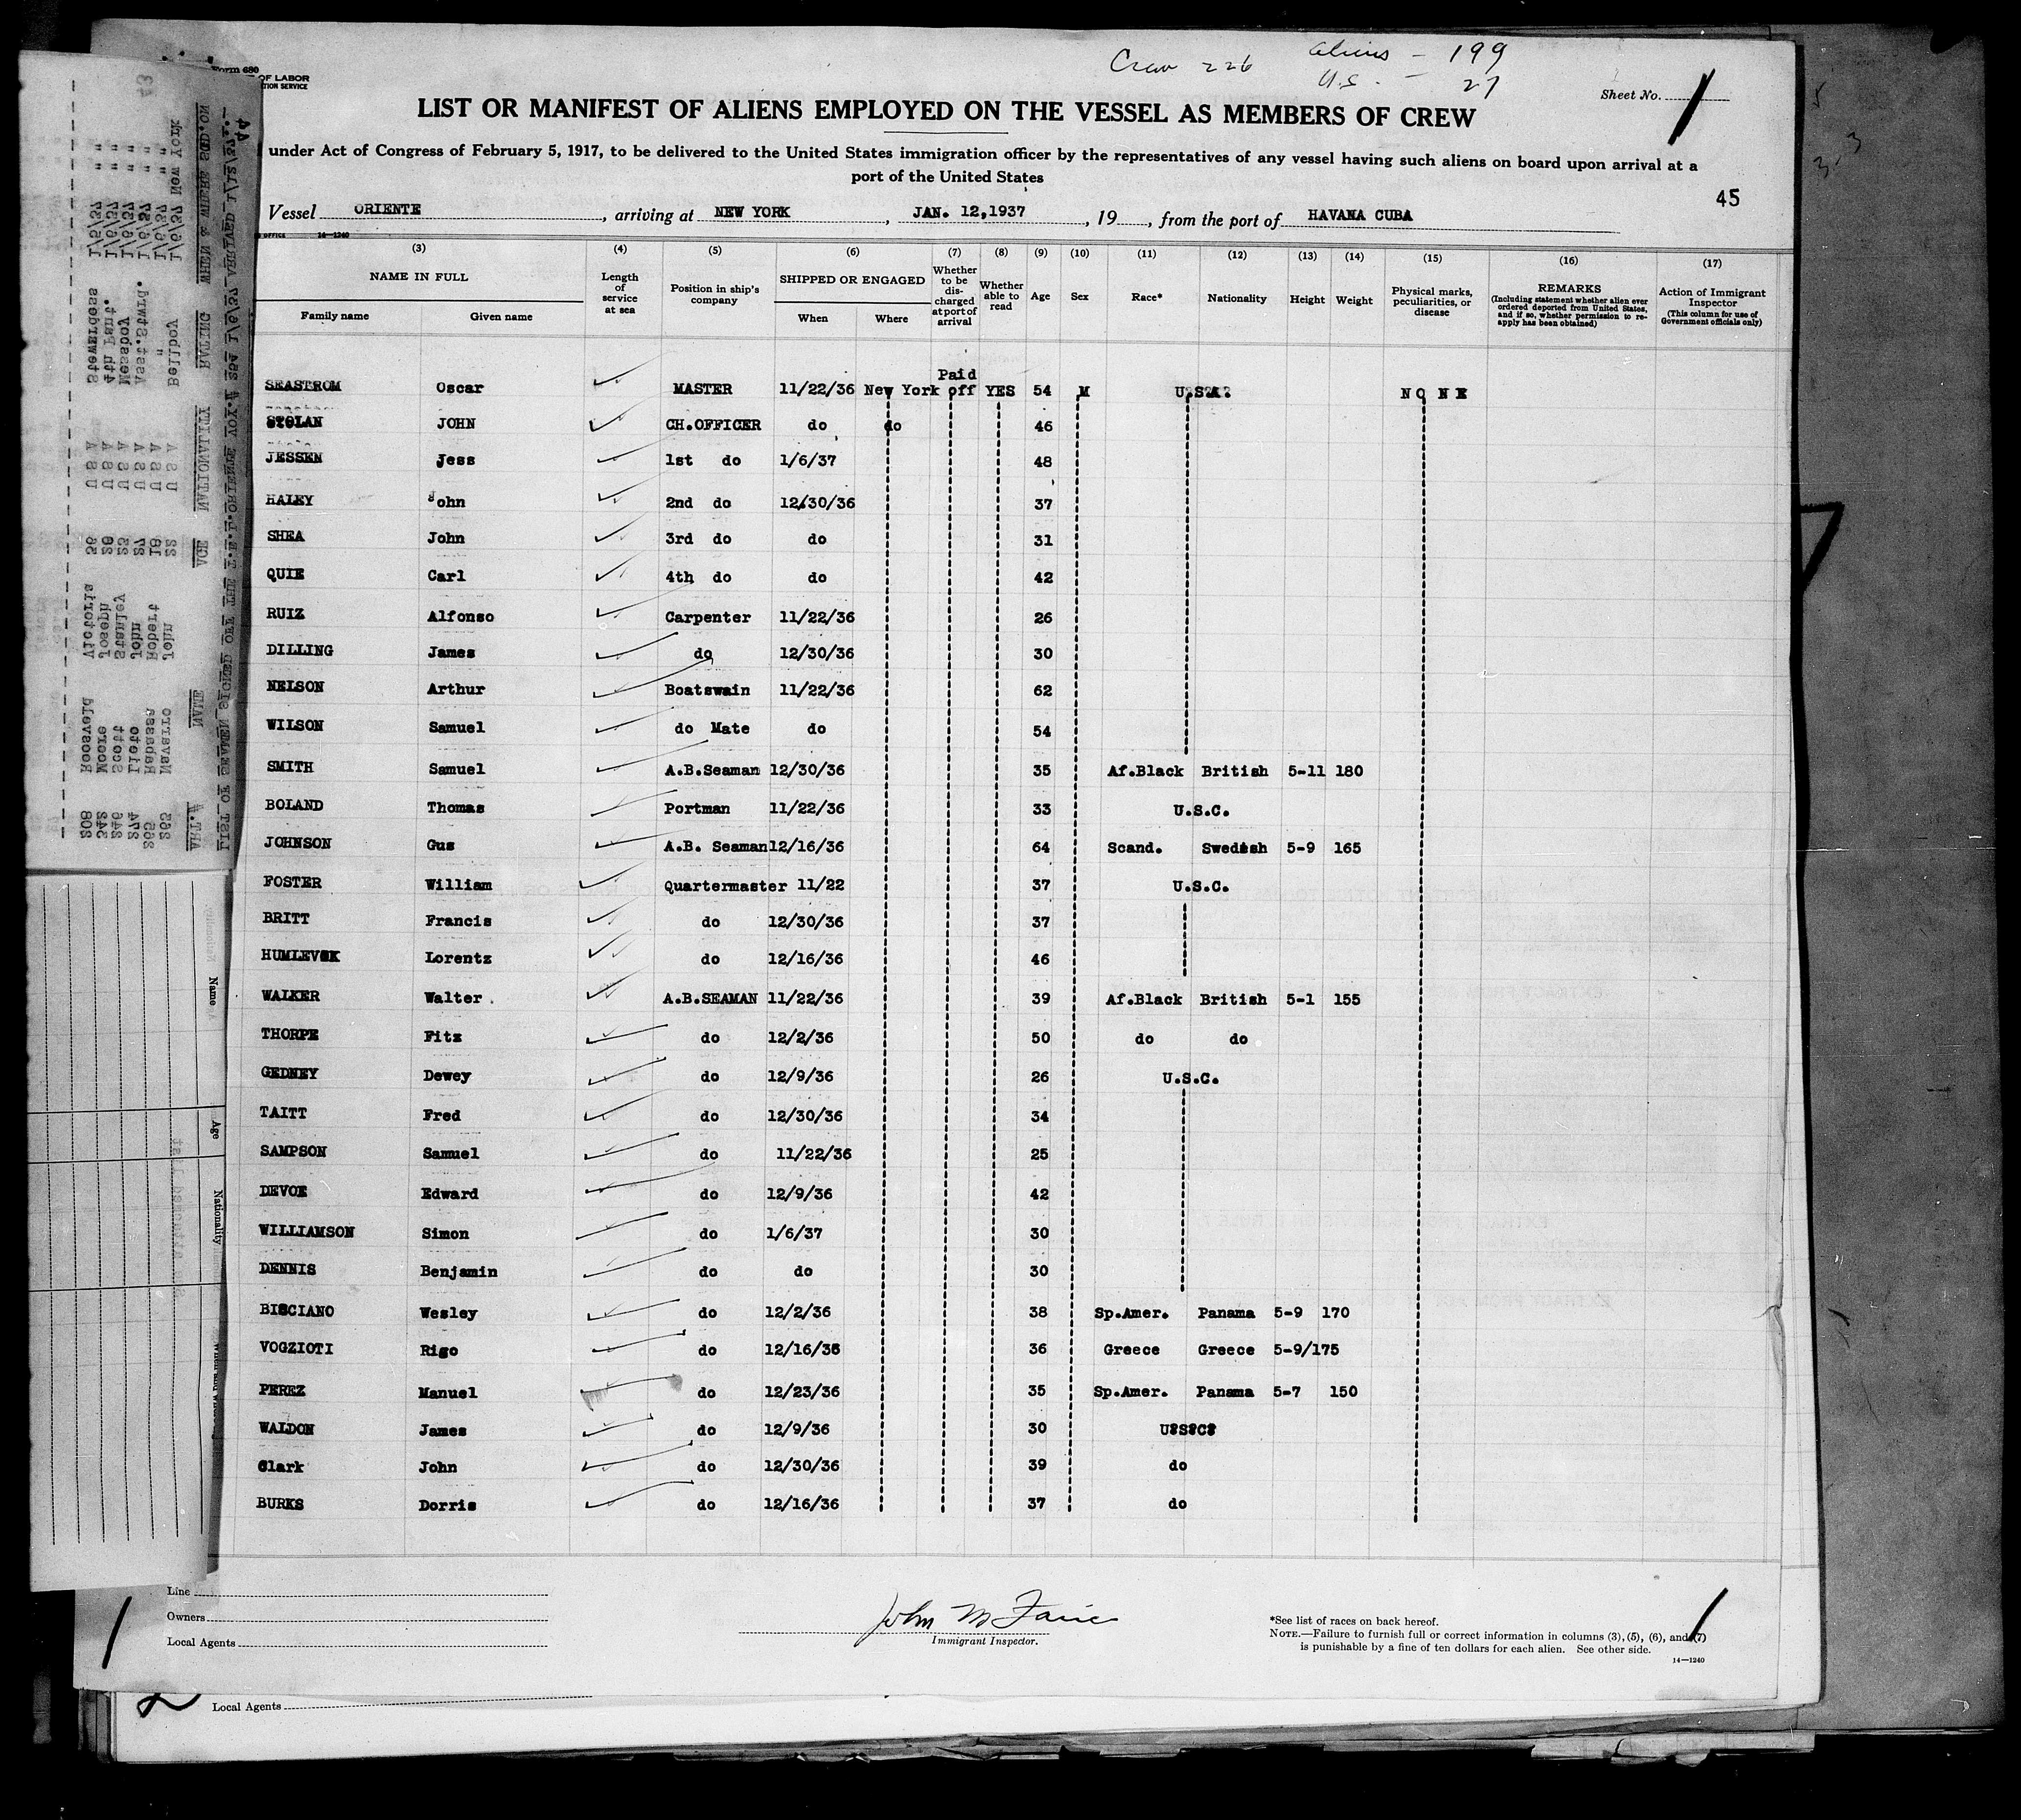 Crew 226 Aliens - 199
U.S. - 27
Form 680
OF LABOR
TION SERVICE
Sheet No. 1
LIST OR MANIFEST OF ALIENS EMPLOYED ON THE VESSEL AS MEMBERS OF CREW
under Act of Congress of February 5, 1917, to be delivered to the United States immigration officer by the representatives of any vessel having such aliens on board upon arrival at a
port of the United States
45
Vessel ORIENTE, arriving at NEW YORK, JAN. 12,1937, 19, from the port of HAVANA CUBA
OFFICE 14-1240
(3) (4) (5) (6) (7) (8) (9) (10) (11) (12) (13) (14) (15) (16) (17)
NAME IN FULL
Family name Given name
Length of service at sea
Position in ship's company
SHIPPED OR ENGAGED
When Where
Whether to be discharged at port of arrival
Whether able to read
Age
Sex
Race*
Nationality
Height
Weight
Physical marks, peculiarities, or disease
REMARKS
(Including statement whether alien ever ordered deported from United States, and if so, whether permission to reapply has been obtained)
Action of Immigrant Inspector
(This column for use of Government officials only)
SEASTROM Oscar MASTER 11/22/36 New York Paid off YES 54 M U.S.A. NONE
STOLAN JOHN CH.OFFICER do do 46
JESSEN Jess 1st do 1/6/37 48
HALEY John 2nd do 12/30/36 37
SHEA John 3rd do do 31
QUIE Carl 4th do do 42
RUIZ Alfonso Carpenter 11/22/36 26
DILLING James do 12/30/36 30
NELSON Arthur Boatswain 11/22/36 62
WILSON Samuel do Mate do 54
SMITH Samuel A.B.Seaman 12/30/36 35 Af.Black British 5-11 180
BOLAND Thomas Portman 11/22/36 33 U.S.C.
JOHNSON Gus A.B. Seaman 12/16/36 64 Scand. Swedish 5-9 165
FOSTER William Quartermaster 11/22 37 U.S.C.
BRITT Francis do 12/30/36 37
HUMLEVIK Lorentz do 12/16/36 46
WALKER Walter. A.B.SEAMAN 11/22/36 39 Af.Black British 5-1 155
THORPE Fitz do 12/2/36 50 do do
GEDNEY Dewey do 12/9/36 26 U.S.C.
TAITT Fred do 12/30/36 34
SAMPSON Samuel do 11/22/36 25
DEVOE Edward do 12/9/36 42
WILLIAMSON Simon do 1/6/37 30
DENNIS Benjamin do do 30
BISCIANO Wesley do 12/2/36 38 Sp.Amer. Panama 5-9 170
VOGZIOTI Rigo do 12/16/36 36 Greece Greece 5-9/175
PEREZ Manuel do 12/23/36 35 Sp.Amer. Panama 5-7 150
WALDON James do 12/9/36 30 U?S?C?
Clark John do 12/30/36 39 do
BURKS Dorris do 12/16/36 37 do
Line
Owners
Local Agents
Immigrant Inspector.
*See list of races on back hereof.
NOTE.—Failure to furnish full or correct information in columns (3), (5), (6), and (7)
is punishable by a fine of ten dollars for each alien. See other side.
14—1240
Local Agents
44
LIST OF SEAMEN SIGNED OFF THE T.E.L.ORIENTE VOY.#
ART.# NAME AGE NATIONALITY RATING WHEN & WHERE SGD.ON
265 Navarro John 22 U S A Bellboy 1/6/37 New York
265 Rabassa Robert 18 U S A " 1/6/37 "
274 Lieto John 27 U S A Asst.Stwrd. 1/6/37 " "
246 Scott Stanley 23 U S A Messboy 1/6/37 " "
242 Moore Joseph 20 U S A 4th Pant. 1/6/37 " "
208 Roosveld Victoria 56 U S A Stewerdess 1/6/37 " "
43
Name
Age
Nationality